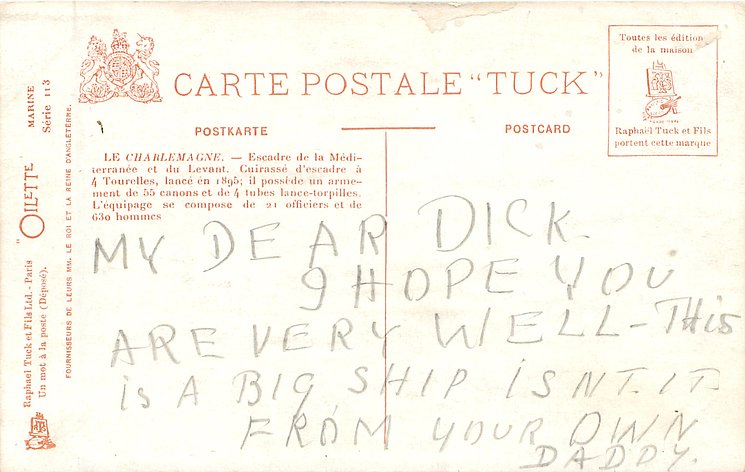 CARTE POSTALE "TUCK"
POSTKARTE
POSTCARD
Toutes les édition
de la maison
Raphael Tuck et Fils
portent cette marque
LE CHARLEMAGNE. — Escadre de la Médi-
terranée et du Levant. Cuirassé d'escadre à
4 Tourelles, lancé en 1895; il possède un arme-
ment de 55 canons et de 4 tubes lance-torpilles.
L'équipage se compose de 21 officiers et de
630 hommes
MY DEAR DICK.
I HOPE YOU
ARE VERY WELL - THIS
is A BIG SHIP iSNT.IT
FROM YOUR OWN
DADDY.
MARINE
Série 113
"OILETTE
Raphael Tuck et Fils Ltd. - Paris
Un mot à la poste (Déposé).
FOURNISSEURS DE LEURS MM. LE ROI ET LA REINE D'ANGLETERRE.